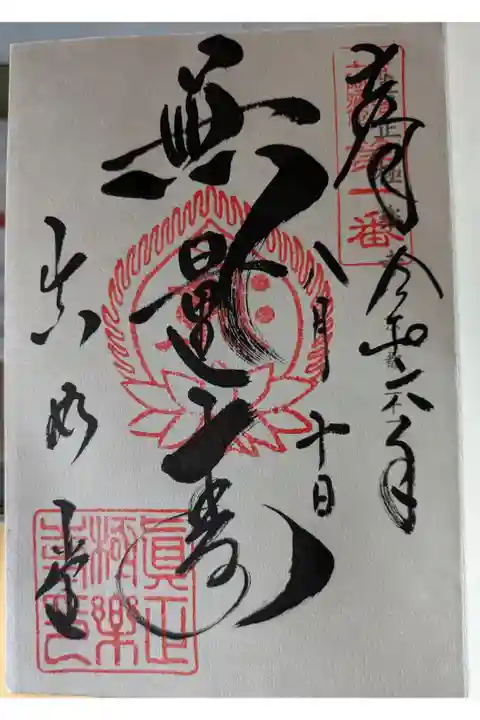 奉拝 令和六年
八月十日
無量寿
真如堂
第一番
眞正
極樂
寺